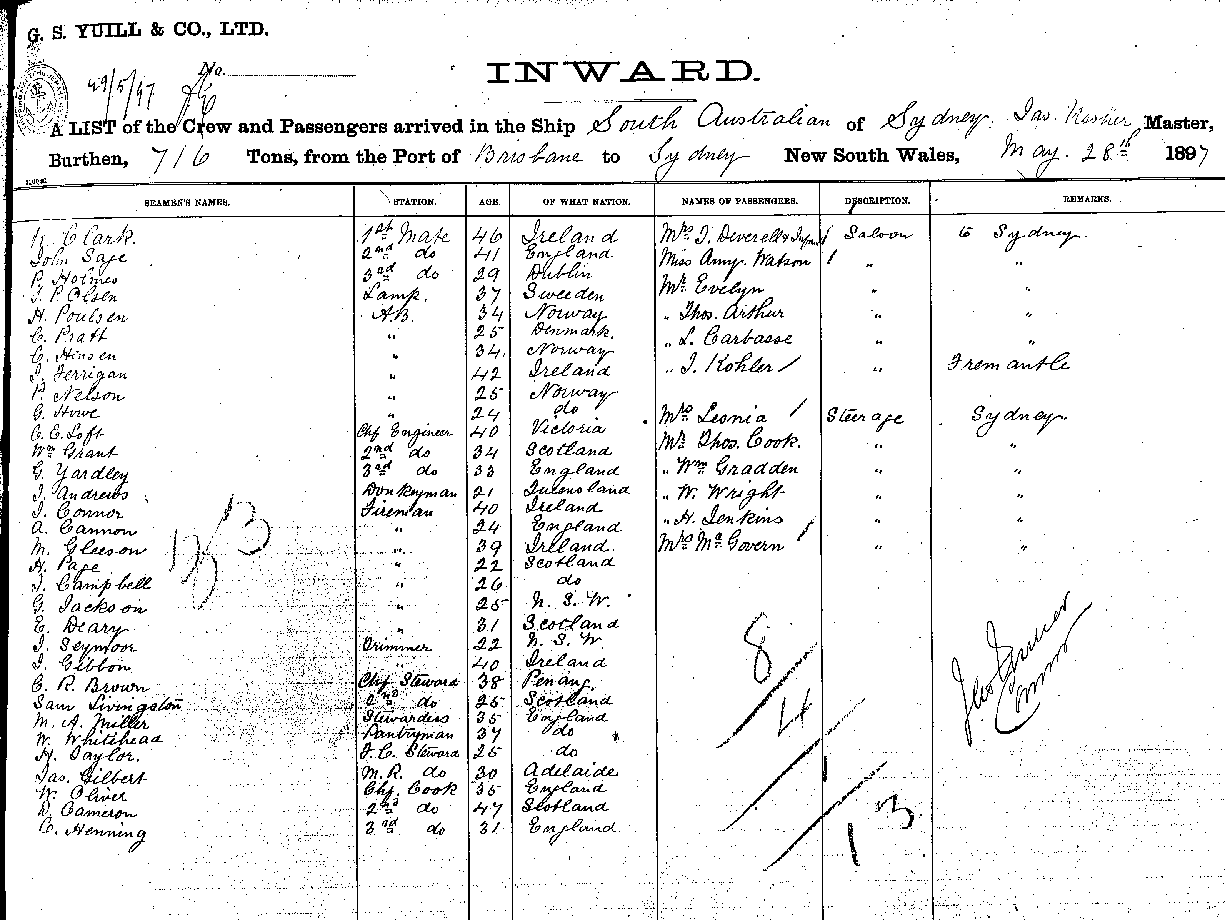 G. S. YUILL & CO., LTD.
No.
29/5/97
INWARD.
A LIST of the Crew and Passengers arrived in the Ship South Australian of Sydney. Jas. Master,
Burthen, 716 Tons, from the Port of Brisbane to Sydney New South Wales, May. 28th 1897
SEAMEN'S NAMES. STATION. AGE. OF WHAT NATION. NAMES OF PASSENGERS. DESCRIPTION. REMARKS.
Clark. 1st Mate 46 Ireland Mrs J. Deverell & Infant Saloon to Sydney
John Sage 2nd do 41 England Miss Amy Watson " "
P. Holmes 3rd do 29 Dublin Mr Evelyn " "
J. P. Olsen Lamp. 37 Sweeden
H. Poulsen A.B. 34 Norway " Thos. Arthur " "
C. Pratt " 25 Denmark. " L. Carbasse " "
C. Hinsen " 34 Norway
J. Ferrigan " 42 Ireland " J. Kohler " Fremantle
P. Nelson " 25 Norway
G. Howe " 24 do Mrs Leonia Steerage Sydney
C. E. Loft Chf Engineer 40 Victoria
Wm Grant 2nd do 34 Scotland Mr Thos. Cook. " "
G. Yardley 3rd do 33 England " Wm Gradden " "
J. Andrews Donkeyman 21 Queensland " W. Wright " "
J. Connor Fireman 40 Ireland
A. Cannon " 24 England " H. Jenkins " "
M. Gleeson " 39 Ireland Mrs McGovern " "
H. Page " 22 Scotland
J. Campbell " 26 do
G. Jackson " 25 N. S. W.
E. Deary " 31 Scotland
J. Seymoor Trimmer 22 N. S. W.
J. Gibbon " 40 Ireland
C. R. Brown Chf Steward 38 Penang
Sam Livingston 2nd do 25 Scotland
M. A. Miller Stewardess 35 England
W. Whitehead Pantryman 37 do
H. Taylor. F. C. Steward 25 do
Jas. Gilbert M. R. do 30 Adelaide
W. Oliver Chf. Cook 35 England
D. Cameron 2nd do 47 Scotland
C. Henning 3rd do 31 England
8
4
1
13